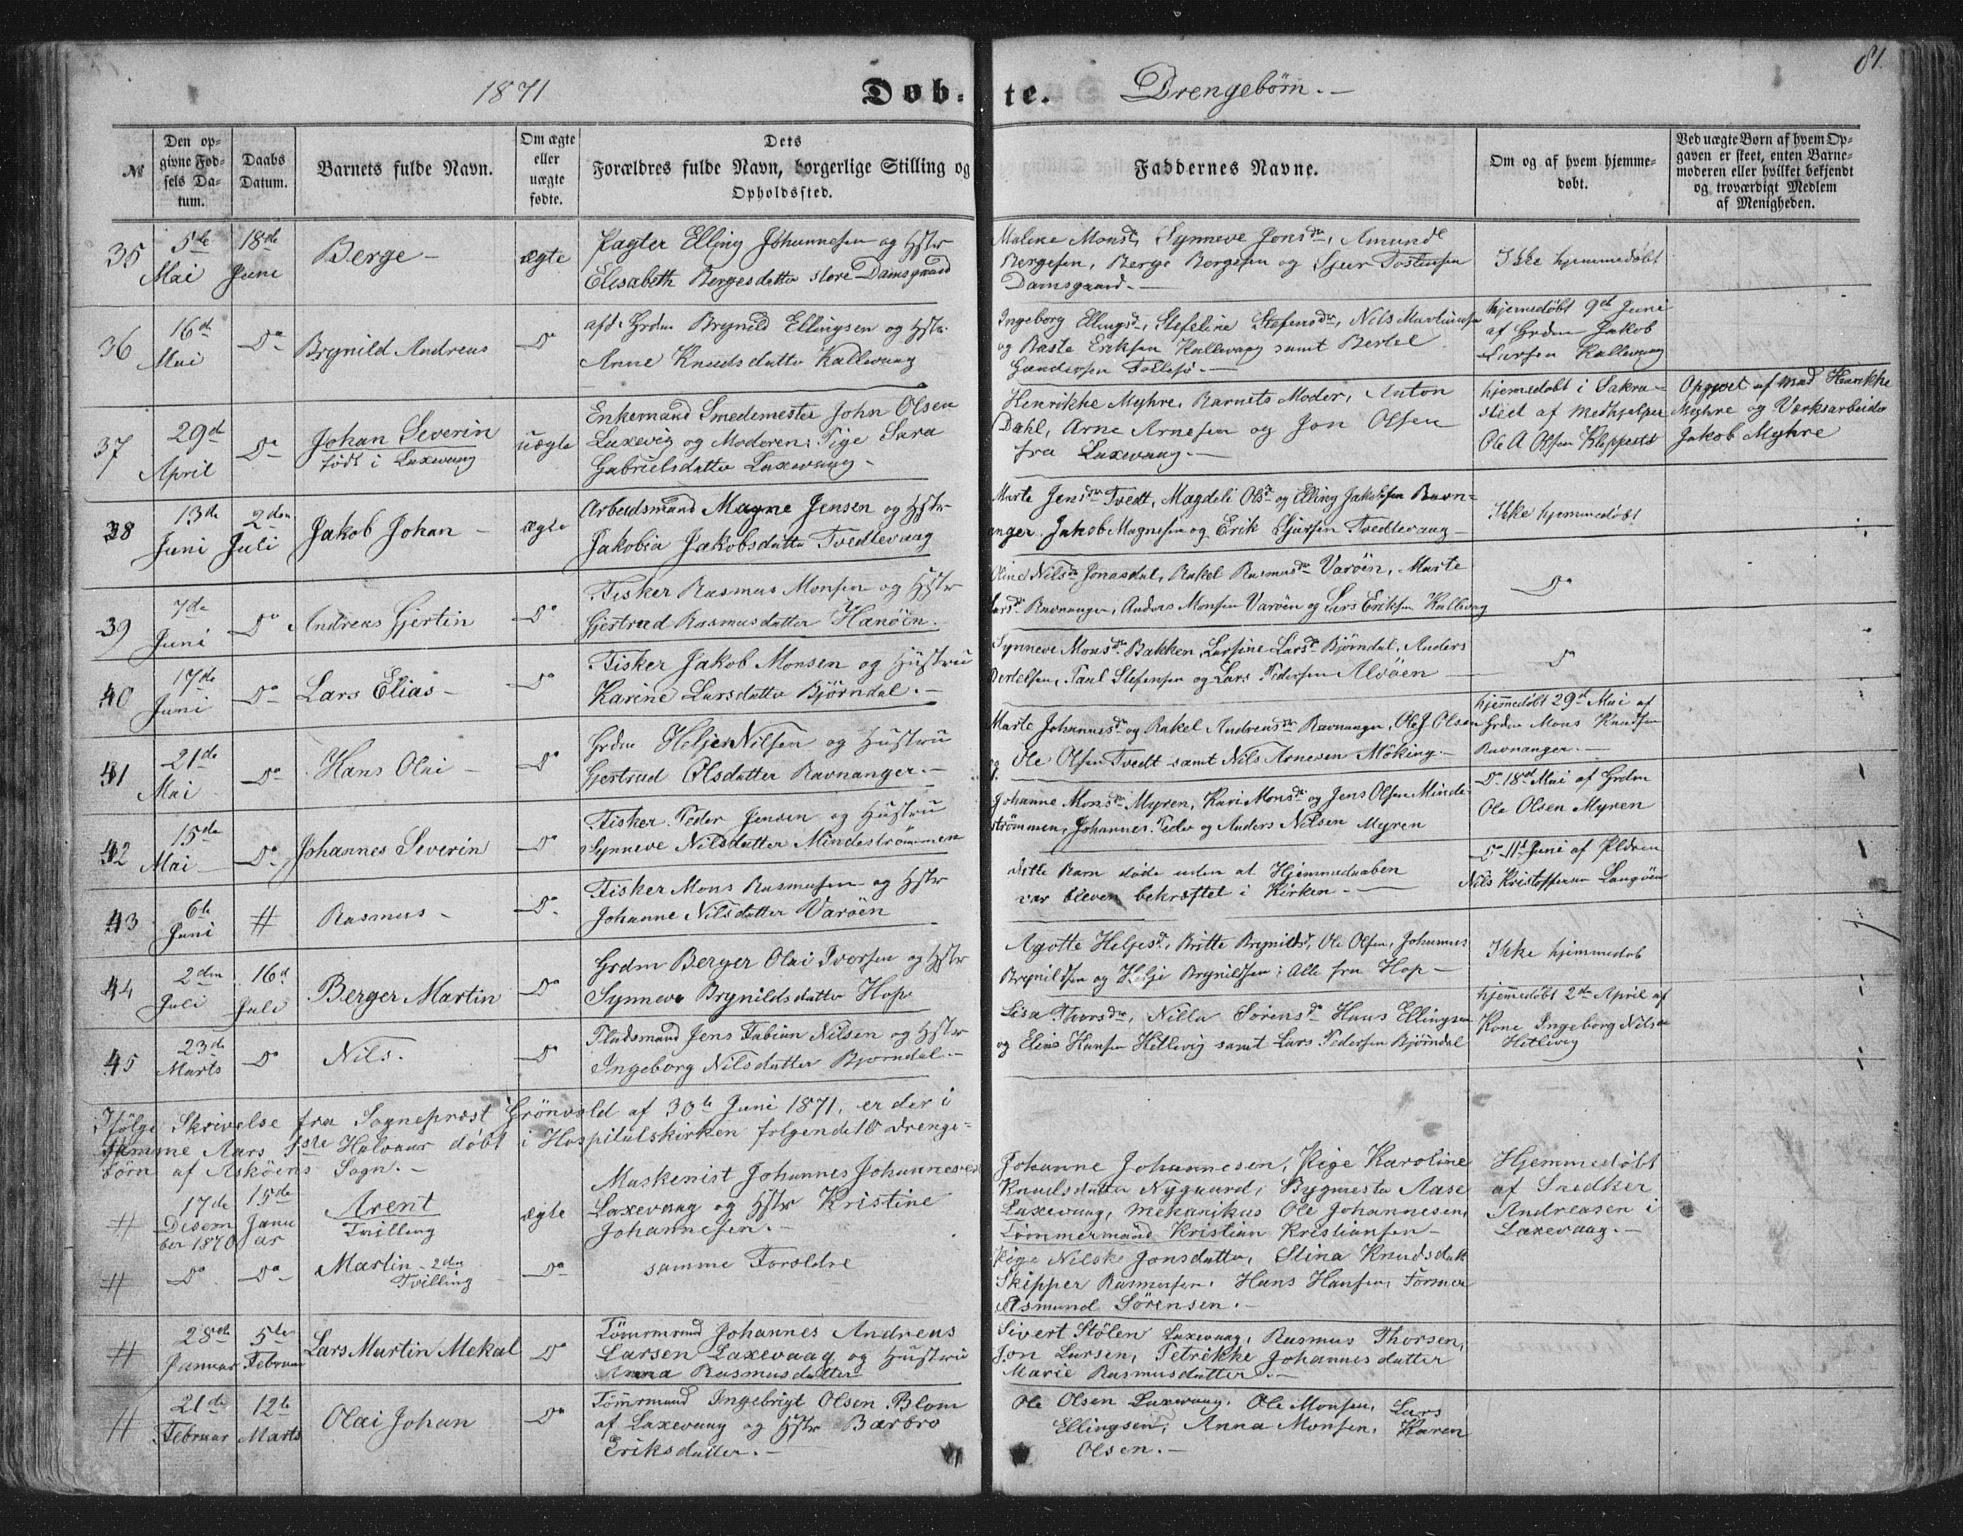 1871 Døb-te. Drengebørn.- 81.
№
Den opgivne Fødsels Datum.
Daabs Datum.
Barnets fulde Navn.
Om ægte eller uægte fødte.
Dets Forældres fulde Navn, borgerlige Stilling og Opholdssted.
Faddernes Navne.
Om og af hvem hjemmedøbt.
Ved uægte Børn af hvem Opgaven er skeet, enten Barnemoderen eller hvilket bekjendt og troværdigt Medlem af Menigheden.
35
5te Mai
18de Juni
Berge-
ægte
Pagter Elling Johannesen og Hstr
Elisabeth Bergesdatter store Damsgaard
Malene Monsdr, Synneve Jonsdr, Amund
Bergesen, Berge Bergesen og Sjur Tostensen
Damsgaard.-
Ikke hjemmedøbt
36
16de Mai
Do
Brynild Andreas
Do
afd. Grdm Brynild Ellingsen og Hstr.
Anne Knudsdatter Kallevaag
Ingeborg Ellingsdr, Stefeline Stefensdr, Nils Martinsen
og Baste Eriksen Kallevaag samt Bertel
Gundersen Follesø.-
hjemmedøbt 9de Juni
af Grdm Jakob
Larsen Kallevaag
37
29de April
Do
Johan Severin
født i Laxevaag
uægte
Enkemand Smedemester John Olsen
Laxevig og Moderen: Pige Sara
Gabrielsdatter Laxevaag-
Henrikke Myhre, Barnets Moder, Anton
Dahl, Arne Arnesen og Jon Olsen
fra Laxevaag.-
hjemmedøbt i Sakra-
stiet af Medhjelper
Ole A Olsen Kleppestø
Opgivet af Mad Henrikke
Myhre og Værksarbeider
Jakob Myhre
38
13de Juni
2den Juli
Jakob Johan-
ægte
Arbeidsmand Magne Jensen og Hstr.
Jakobia Jakobsdatter Tvedtevaag
Marte Jensdr Tvedt, Magdeli Olsdr og Elling Jakobsen Ravn-
anger, Jakob Magnesen og Erik Sjursen Tvedtevaag-
Ikke hjemmedøbt
39
7de Juni
Do
Andreas Gjertin
Do
Fisker Rasmus Monsen og Hstr
Gjertrud Rasmusdatter Hanøen.
Oline Nilsdr Jonasdal, Rakel Rasmusdr Varøen, Marte
Larsdr Ravnanger, Anders Monsen Varøen og Lars Eriksen Kallevag
Do
40
17de Juni
Do
Lars Elias-
Do
Fisker Jakob Monsen og Hustru
Karine Larsdatter Bjørndal.-
Synneve Monsdr Bakken, Larsine Larsdr Bjørndal, Anders
Bertelsen, Paul Stefensen og Lars Pedersen Alvøen-
Do
41
21de Mai
Do
Hans Olai-
Do
Grdm Heljer Nilsen og Hustru
Gjertrud Olsdatter Ravnanger.-
Marte Johannesdr og Rakel Andreasdr Ravnanger, Ole J Olsen
og Ole Olsen Tvedt samt Nils Arnesen Möking.-
hjemmedøbt 29de Mai af
Grdm Mons Knudsen
Ravnanger.-
42
15de Mai
Do
Johannes Severin
Do
Fisker Peder Jensen og Hustru
Synneve Nilsdatter Mindestrømmen
Johanne Monsdr Myren, Kari Monsdr og Jens Olsen Minde-
strømmen, Johannes Peder og Anders Nilsen Myren
Do 18de Mai af Grdm
Ole Olsen Myren
43
6te Juni
#
Rasmus-
Do
Fisker Mons Rasmusen og Hstr
Johanne Nilsdatter Varøen
Dette Barn døde uden at Hjemmedaaben
var bleven bekræftet i Kirken.-
Do 11te Juni af
Nils Kristoffersen Langøen
44
2den Juli
16de Juli
Berger Martin
Do
Grdm Berger Olai Iversen og Hstr
Synneve Brynildsdatter Hop
Agotte Heljesdr, Britte Brynildsdr, Ole Olsen, Johannes
Brynildsen og Helje Brynildsen; Alle fra Hop-
Ikke hjemmedøb
45
23de Marts
Do
Nils.
Do
Pladsmand Jens Fabian Nilsen og Hstr
Ingeborg Nilsdatter Bjørndal.-
Lisa Thorsdr, Nilla Sørensdr Hans Ellingsen
og Elias Hansen Hetlevig samt Lars Pedersen Bjørndal
hjemmedøbt 2den April af
Kone Ingeborg Nilsen
Hetlevig
Ifølge Skrivelse fra Sogneprest Grönvold af 30te Juni 1871, er der i
samme Aars 1ste Halvaar døbt i Hospitalskirken følgende 10 Drenge-
børn af Askøens Sogn.-
#
17de Desember 1870
15de Januar
Arent
Tvilling
ægte
Maskenist Johannes Johannesen
Laxevaag og Hstr Kristine
Johannesen.-
Johanne Johannesen, Pige Karoline
Knudsdatter Nygaard, Bygmester Aase
Laxevaag, Mekanikus Ole Johannesen,
Tømmermand Kristian Kristiansen-
Hjemmedøbt
af Snedker
Andreasen i
Laxevaag.-
#
Do
Do
Martin- 2den
Tvilling
Do
samme Forældre
Pige Nilske Jonsdatter, Stina Knudsdatt
Skipper Rasmusen, Hans Hansen, Former
Asmund Sörensen.-
#
28de Januar
5te Februar
Lars Martin Mekal
Do
Tömrmand Johannes Andreas
Larsen Laxevaag og Hustru
Anna Rasmusdatter
Sivert Stölen Laxevaag, Rasmus Thorsen,
Jon Larsen, Petrikke Johannesdatter
Marie Rasmusdatter.-
#
21de Februar
12te Marts
Olai Johan
Do
Tömrmand Ingebrigt Olsen Blom
af Laxevaag og Hstr Barbro
Eriksdatter.-
Ole Olsen Laxevaag, Ole Monsen, Lars
Ellingsen, Anna Monsen, Karen
Olsen.-